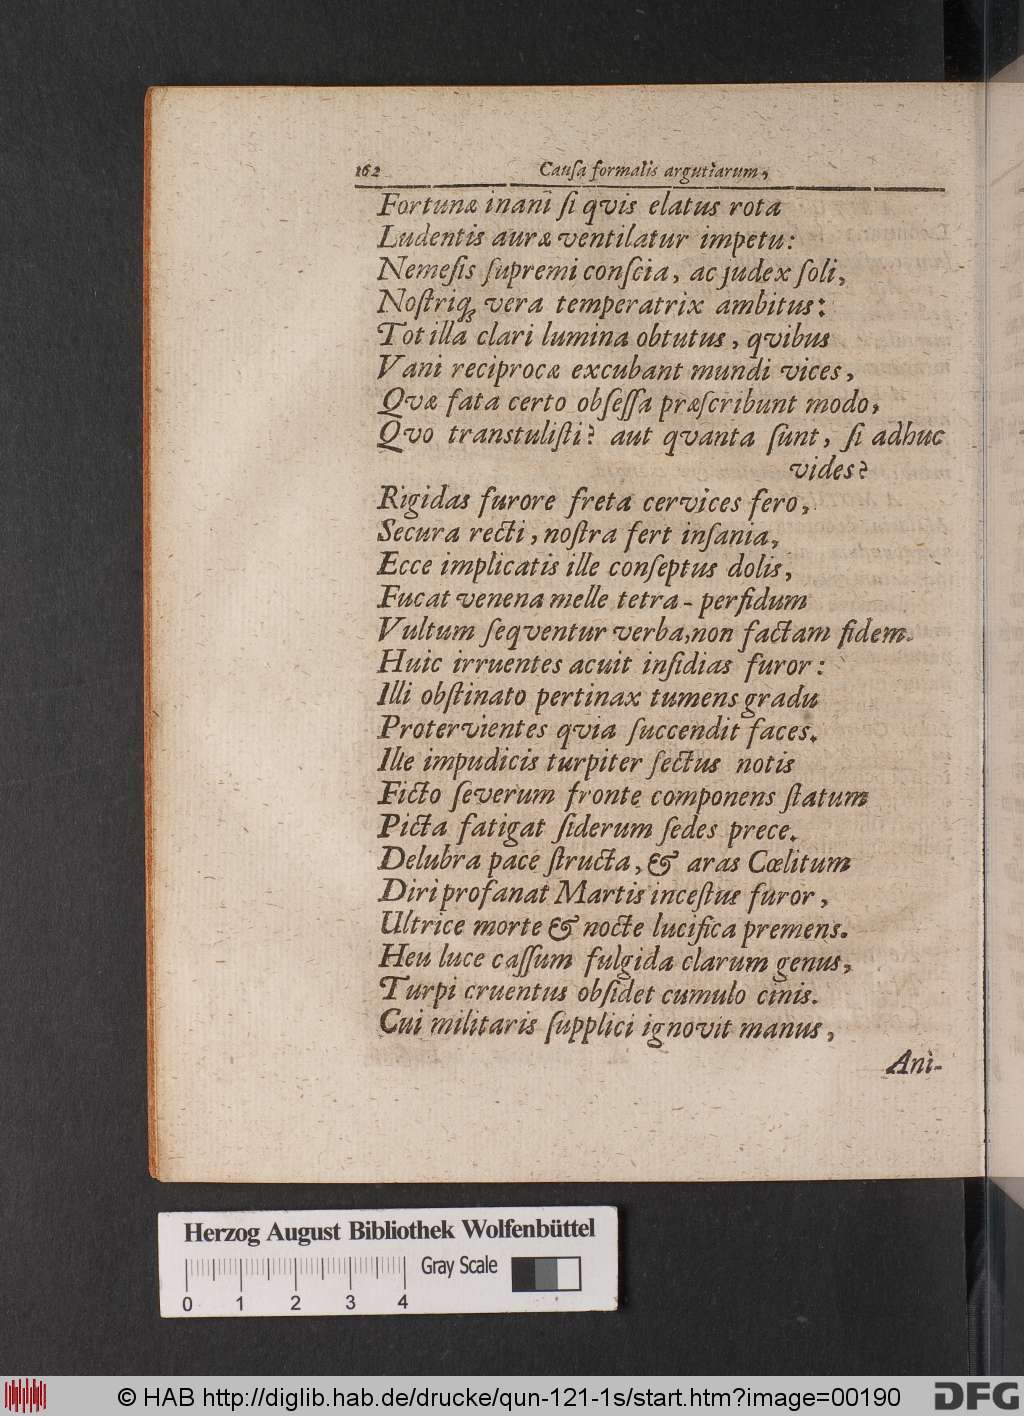 162 Cauſa formalis argutiarum,
Fortunæ inani ſi qvis elatus rota
Ludentis auræ ventilatur impetu:
Nemeſis ſupremi conſcia, ac judex ſoli,
Noſtriqꝫ vera temperatrix ambitus:
Tot illa clari lumina obtutus, qvibus
Vani reciprocæ excubant mundi vices,
Qvæ fata certo obſeſſa præſcribunt modo,
Qvo transtuliſti? aut qvanta ſunt, ſi adhuc
vides?
Rigidas furore freta cervices fero,
Secura recti, noſtra fert inſania,
Ecce implicatis ille conſeptus dolis,
Fucat venena melle tetra - perfidum
Vultum ſeqventur verba, non factam fidem.
Huic irruentes acuit inſidias furor:
Illi obſtinato pertinax tumens gradu
Protervientes qvia ſuccendit faces.
Ille impudicis turpiter ſectus notis
Ficto ſeverum fronte componens ſtatum
Picta fatigat ſiderum ſedes prece.
Delubra pace ſtructa, & aras Cœlitum
Diri profanat Martis inceſtus furor,
Ultrice morte & nocte lucifica premens.
Heu luce caſſum fulgida clarum genus,
Turpi cruentus obſidet cumulo cinis.
Cui militaris ſupplici ignovit manus,
Ani-
Herzog August Bibliothek Wolfenbüttel
Gray Scale
0 1 2 3 4
© HAB http://diglib.hab.de/drucke/qun-121-1s/start.htm?image=00190
DFG